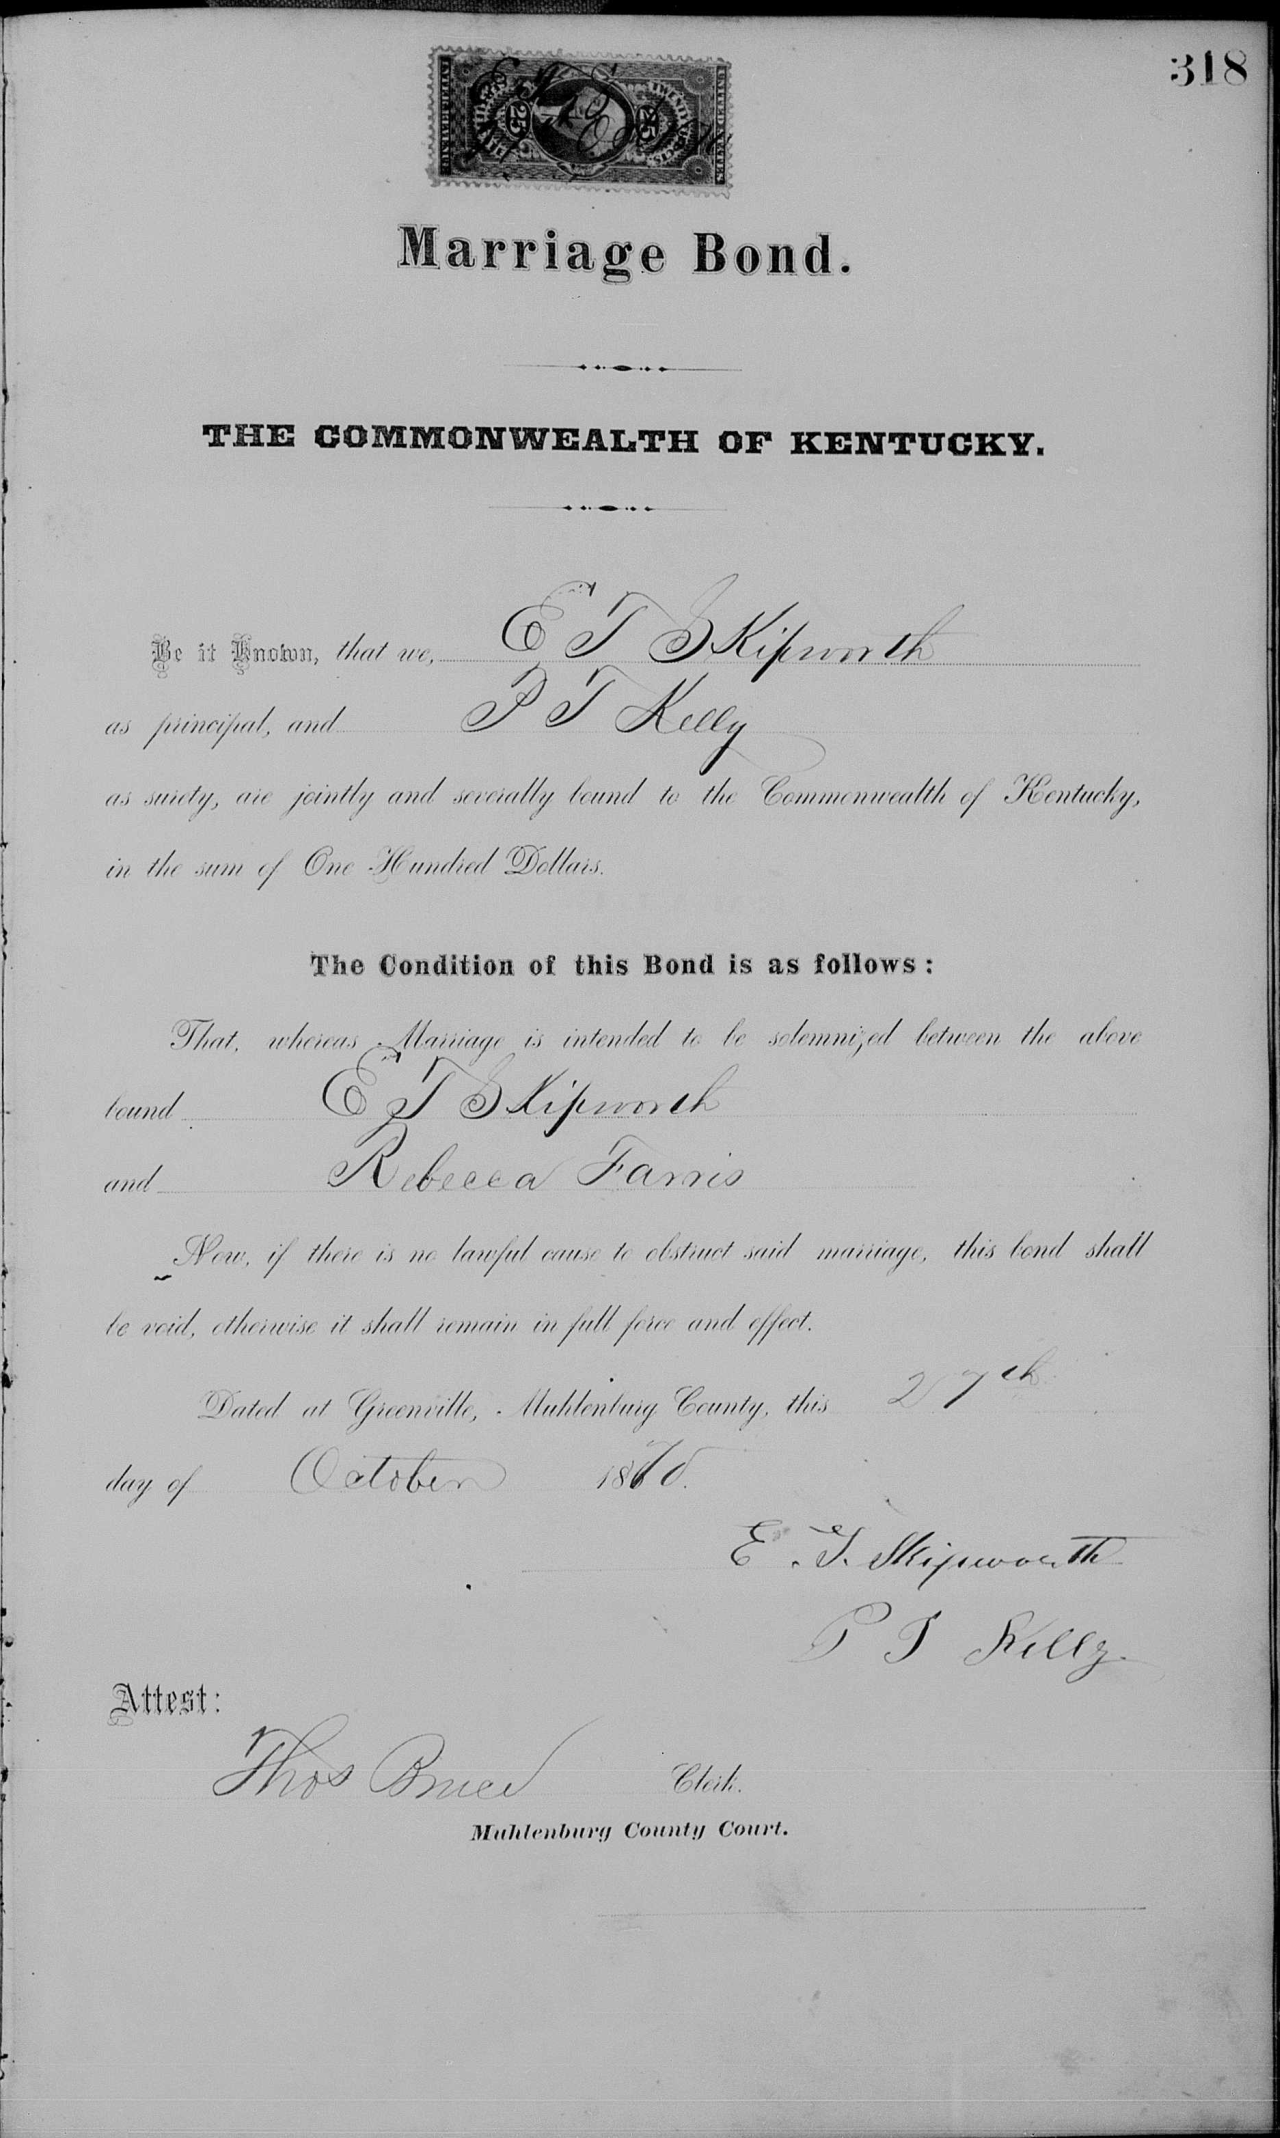 318
25 25
Marriage Bond.
THE COMMONWEALTH OF KENTUCKY.
Be it Known, that we, E T Skipworth
as principal, and P T Kelly
as surety, are jointly and severally bound to the Commonwealth of Kentucky,
in the sum of One Hundred Dollars.
The Condition of this Bond is as follows:
That, whereas Marriage is intended to be solemnized between the above
bound E T Skipworth
and Rebecca Farris
Now, if there is no lawful cause to obstruct said marriage, this bond shall
be void, otherwise it shall remain in full force and effect.
Dated at Greenville, Muhlenburg County, this 27th
day of October 1870.
E. T. Skipworth
P T Kelly
Attest:
Thos Bruce Clerk.
Muhlenburg County Court.